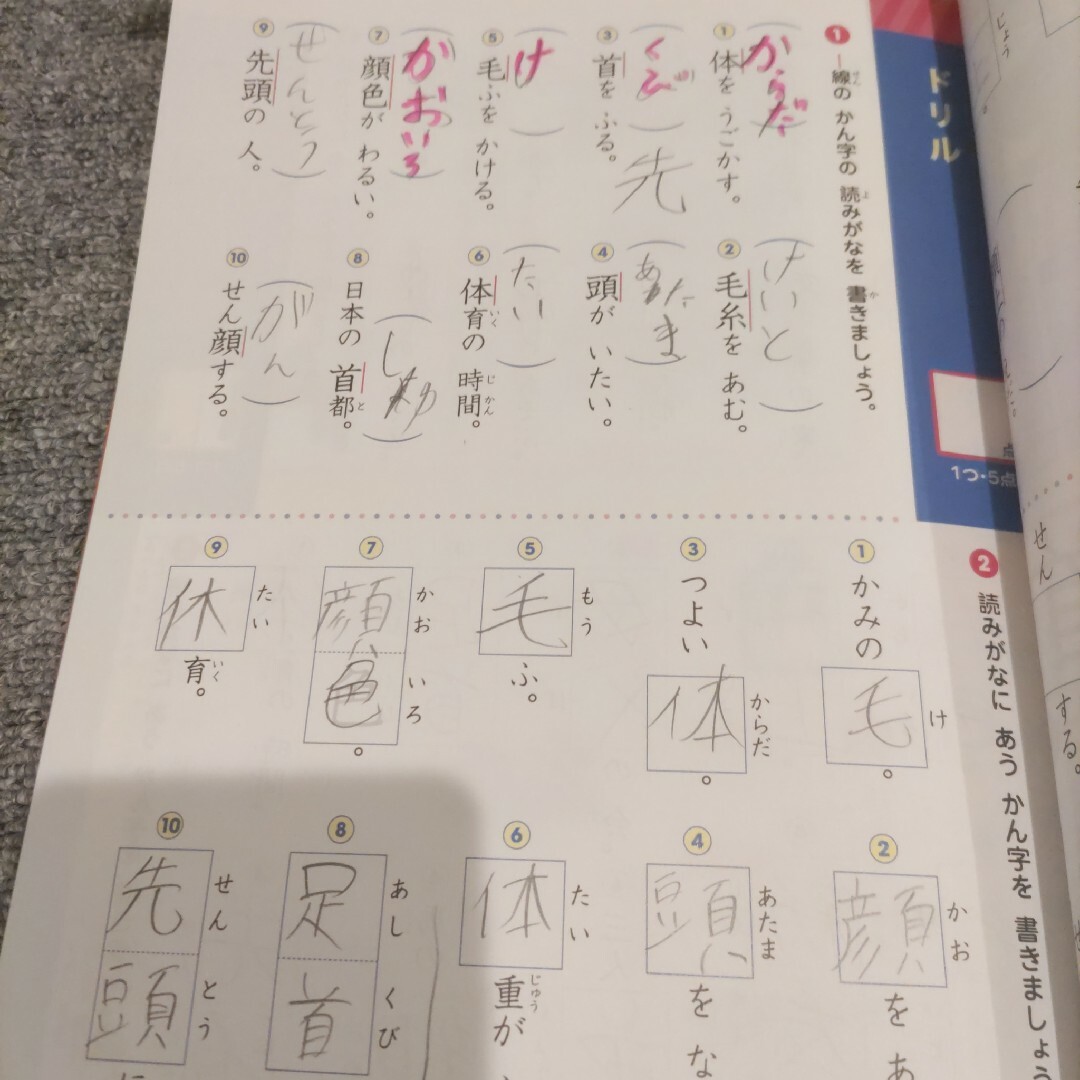 ドリル
点
1つ・5点
1 ―線の かん字の 読みがなを 書きましょう。
① 体を うごかす。
からだ
② 毛糸を あむ。
けいと
③ 首を ふる。
くび
先
④ 頭が いたい。
あたま
⑤ 毛ふを かける。
け
⑥ 体育の 時間。
たい
⑦ 顔色が わるい。
かおいろ
⑧ 日本の 首都。
しゅ
⑨ 先頭の 人。
せんとう
⑩ せん顔する。
がん
2 読みがなに あう かん字を 書きましょう
① かみの 毛。
け
② 顔を あ
かお
③ つよい 体。
からだ
④ 頭を な
あたま
⑤ 毛ふ。
もう
⑥ 体重が
たい じゅう
⑦ 顔色。
かお いろ
⑧ 足首
あし くび
⑨ 休育。
たい いく
⑩ 先頭に
せん とう
じょう
せん
する。